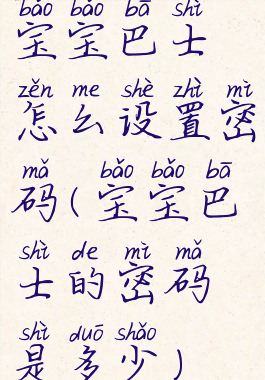 bǎo bǎo bā shì
宝宝巴士
zěn me shè zhì mì
怎么设置密
mǎ bǎo bǎo bā
码(宝宝巴
shì de mì mǎ
士的密码
shì duō shǎo
是多少)